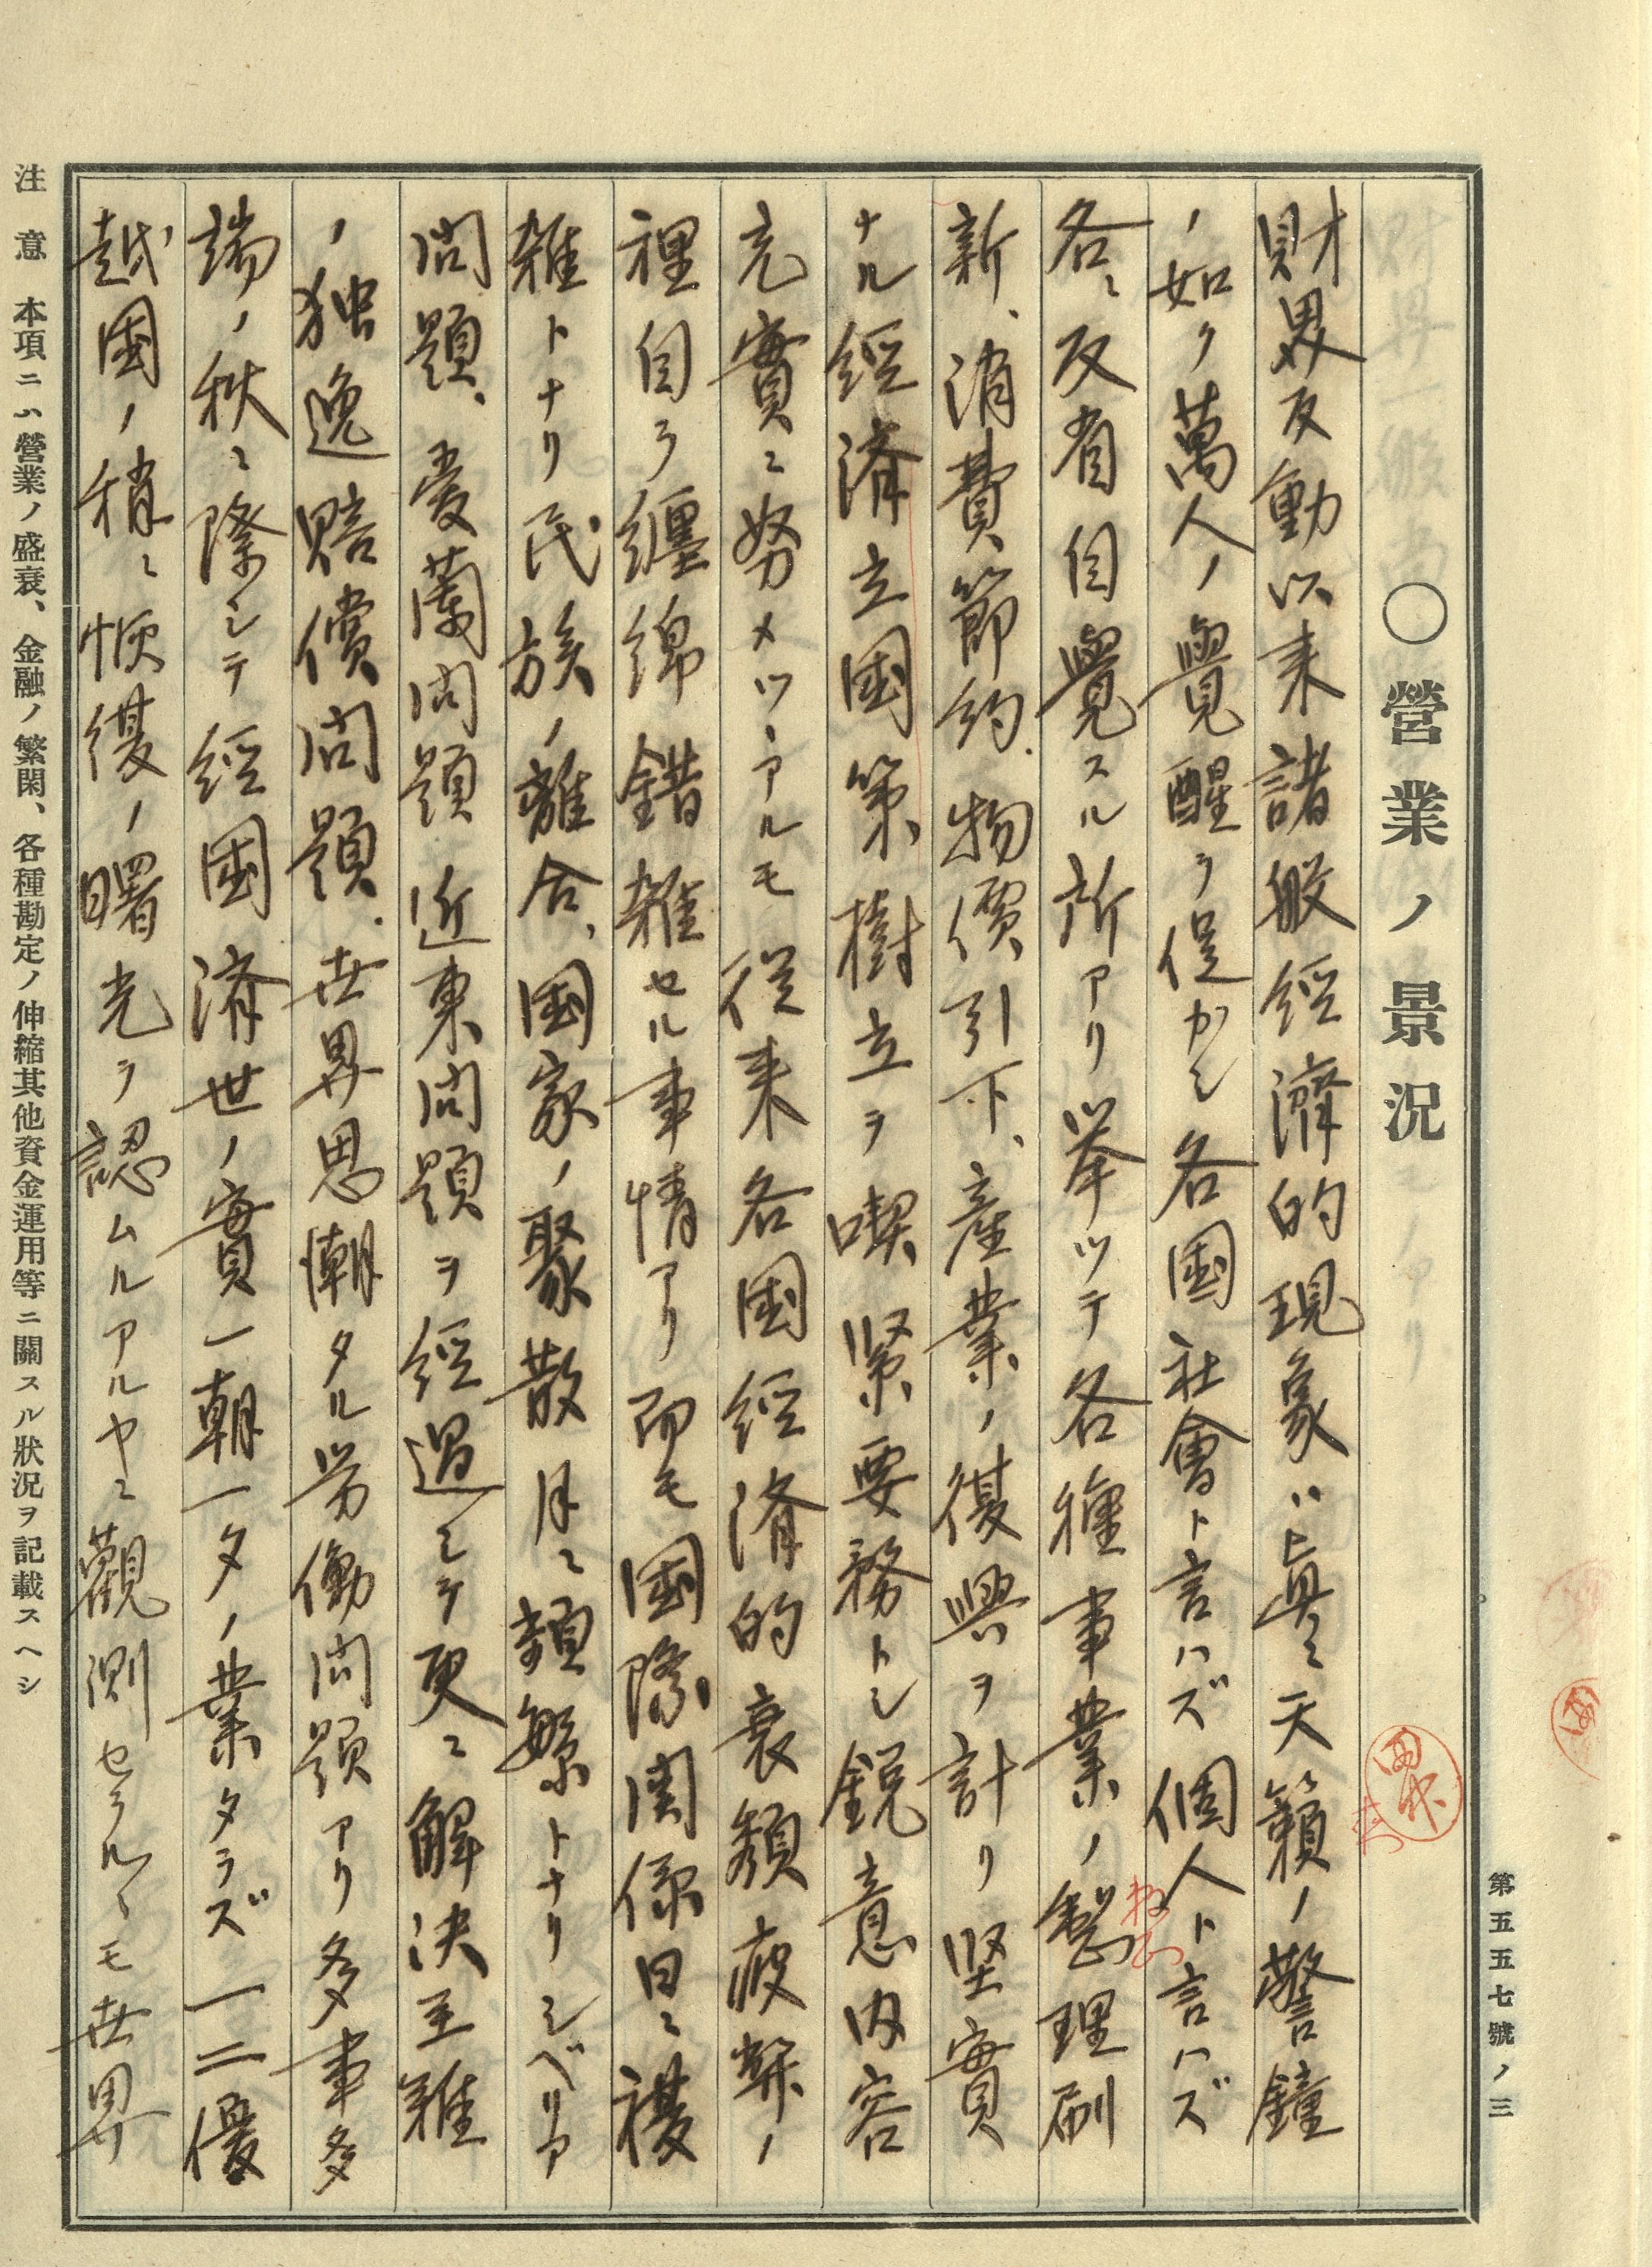 第五五七號ノ三
○營業ノ景況
財界反動以来諸般經濟的現象ハ眞ニ天籟ノ警鐘
ノ如ク萬人ノ覺醒ヲ促カシ各国社會ト言ハズ個人ト言ハズ
各々反省自覺スル所アリ挙ツテ各種事業ノ整理刷
新、消費節約、物價引下、産業ノ復興ヲ計リ堅實
ナル經済立國策樹立ヲ喫緊要務トシ鋭意内容
充實ニ努メツヽアルモ従来各国經済的衰頽疲弊ノ
裡自ラ纏綿錯雑セル事情アリ而モ國際関係日ニ複
雑トナリ民族ノ離合、國家ノ聚散月ニ頻繁トナリシベリア
問題、愛蘭問題近東問題ヲ經過シテ更ニ解決至難
ノ独逸賠償問題、世界思潮タル労働問題アリ多事多
端ノ秋ニ際シテ經國済世ノ實一朝一夕ノ業タラズ一二優
越國ノ稍々恢復ノ曙光ヲ認ムルアルヤニ觀測セラルヽモ世界
注意 本項ニハ營業ノ盛衰、金融ノ繁閑、各種勘定ノ伸縮其他資金運用等ニ關スル狀況ヲ記載スヘシ